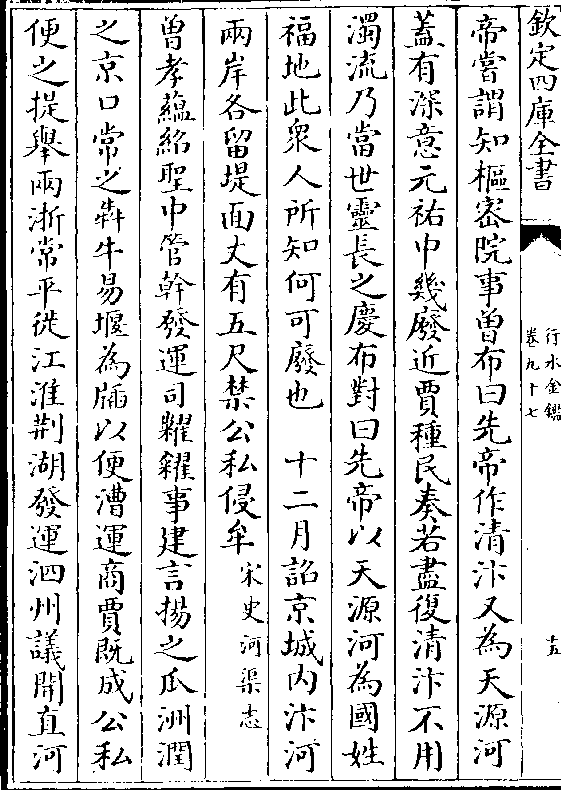 欽定四庫全書
行水金鑑
卷九十七
十五
帝嘗謂知樞密院事曽布曰先帝作清汴又為天源河
蓋有深意元祐中幾廢近賈種民奏若盡復清汴不用
濁流乃當世靈長之慶布對曰先帝以天源河為國姓
福地此衆人所知何可廢也　十二月詔京城内汴河
兩岸各留堤面丈有五尺禁公私侵牟宋史河渠志
曽孝藴紹聖中管幹發運司糴糶事建言揚之瓜洲潤
之京口常之犇牛易堰為牐以便漕運商賈既成公私
便之提舉兩浙常平徙江淮荆湖發運泗州議開直河